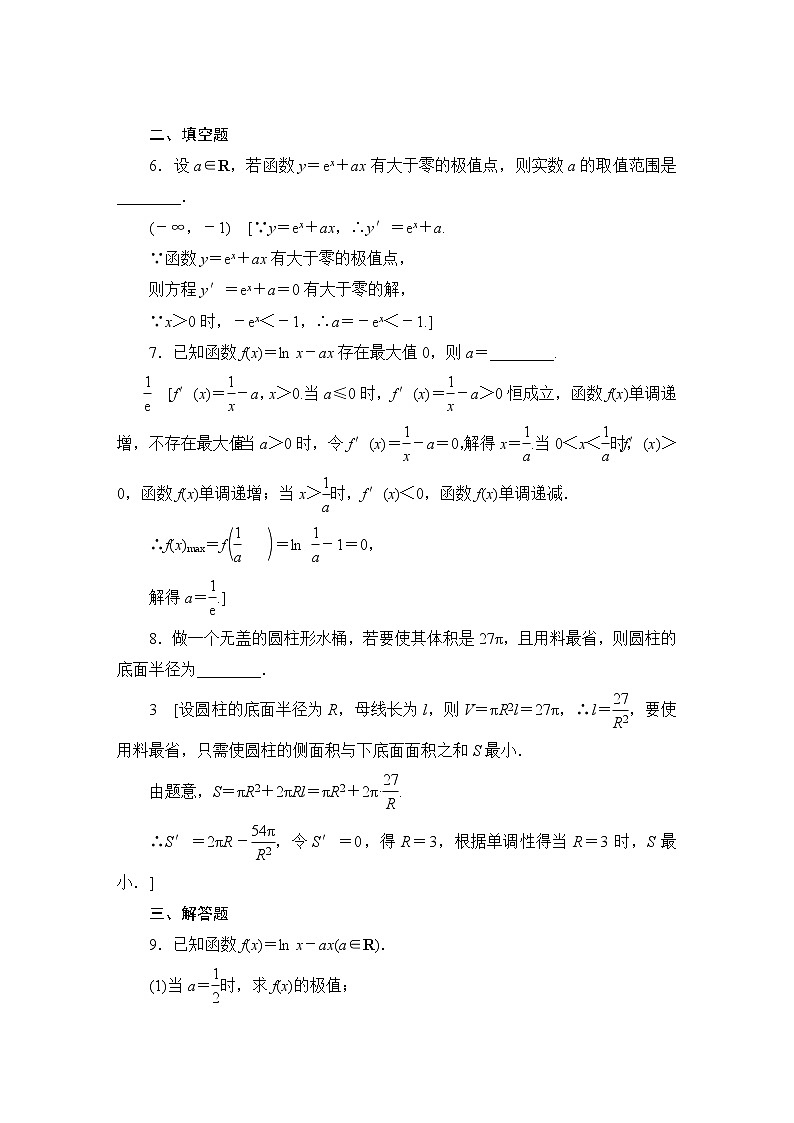 二、填空题
6．设 a∈R，若函数 y＝eˣ＋ax 有大于零的极值点，则实数 a 的取值范围是
________．
(－∞，－1)　[∵y＝eˣ＋ax，∴y′＝eˣ＋a.
∵函数 y＝eˣ＋ax 有大于零的极值点，
则方程 y′＝eˣ＋a＝0 有大于零的解，
∵x＞0 时，－eˣ＜－1，∴a＝－eˣ＜－1.]
7．已知函数 f(x)＝ln x－ax 存在最大值 0，则 a＝________.
1/e　[f′(x)＝1/x－a，x＞0.当 a≤0 时，f′(x)＝1/x－a＞0 恒成立，函数 f(x)单调递
增，不存在最大值当 a＞0 时，令 f′(x)＝1/x－a＝0，解得 x＝1/a.当 0＜x＜1/a时，f′(x)＞
0，函数 f(x)单调递增；当 x＞1/a时，f′(x)＜0，函数 f(x)单调递减．
∴f(x)max＝f(1/a)＝ln 1/a－1＝0，
解得 a＝1/e.]
8．做一个无盖的圆柱形水桶，若要使其体积是 27π，且用料最省，则圆柱的
底面半径为________．
3　[设圆柱的底面半径为 R，母线长为 l，则 V＝πR²l＝27π，∴l＝27/R²，要使
用料最省，只需使圆柱的侧面积与下底面面积之和 S 最小．
由题意，S＝πR²＋2πRl＝πR²＋2π·27/R.
∴S′＝2πR－54π/R²，令 S′＝0，得 R＝3，根据单调性得当 R＝3 时，S 最
小．]
三、解答题
9．已知函数 f(x)＝ln x－ax(a∈R)．
(1)当 a＝1/2时，求 f(x)的极值；